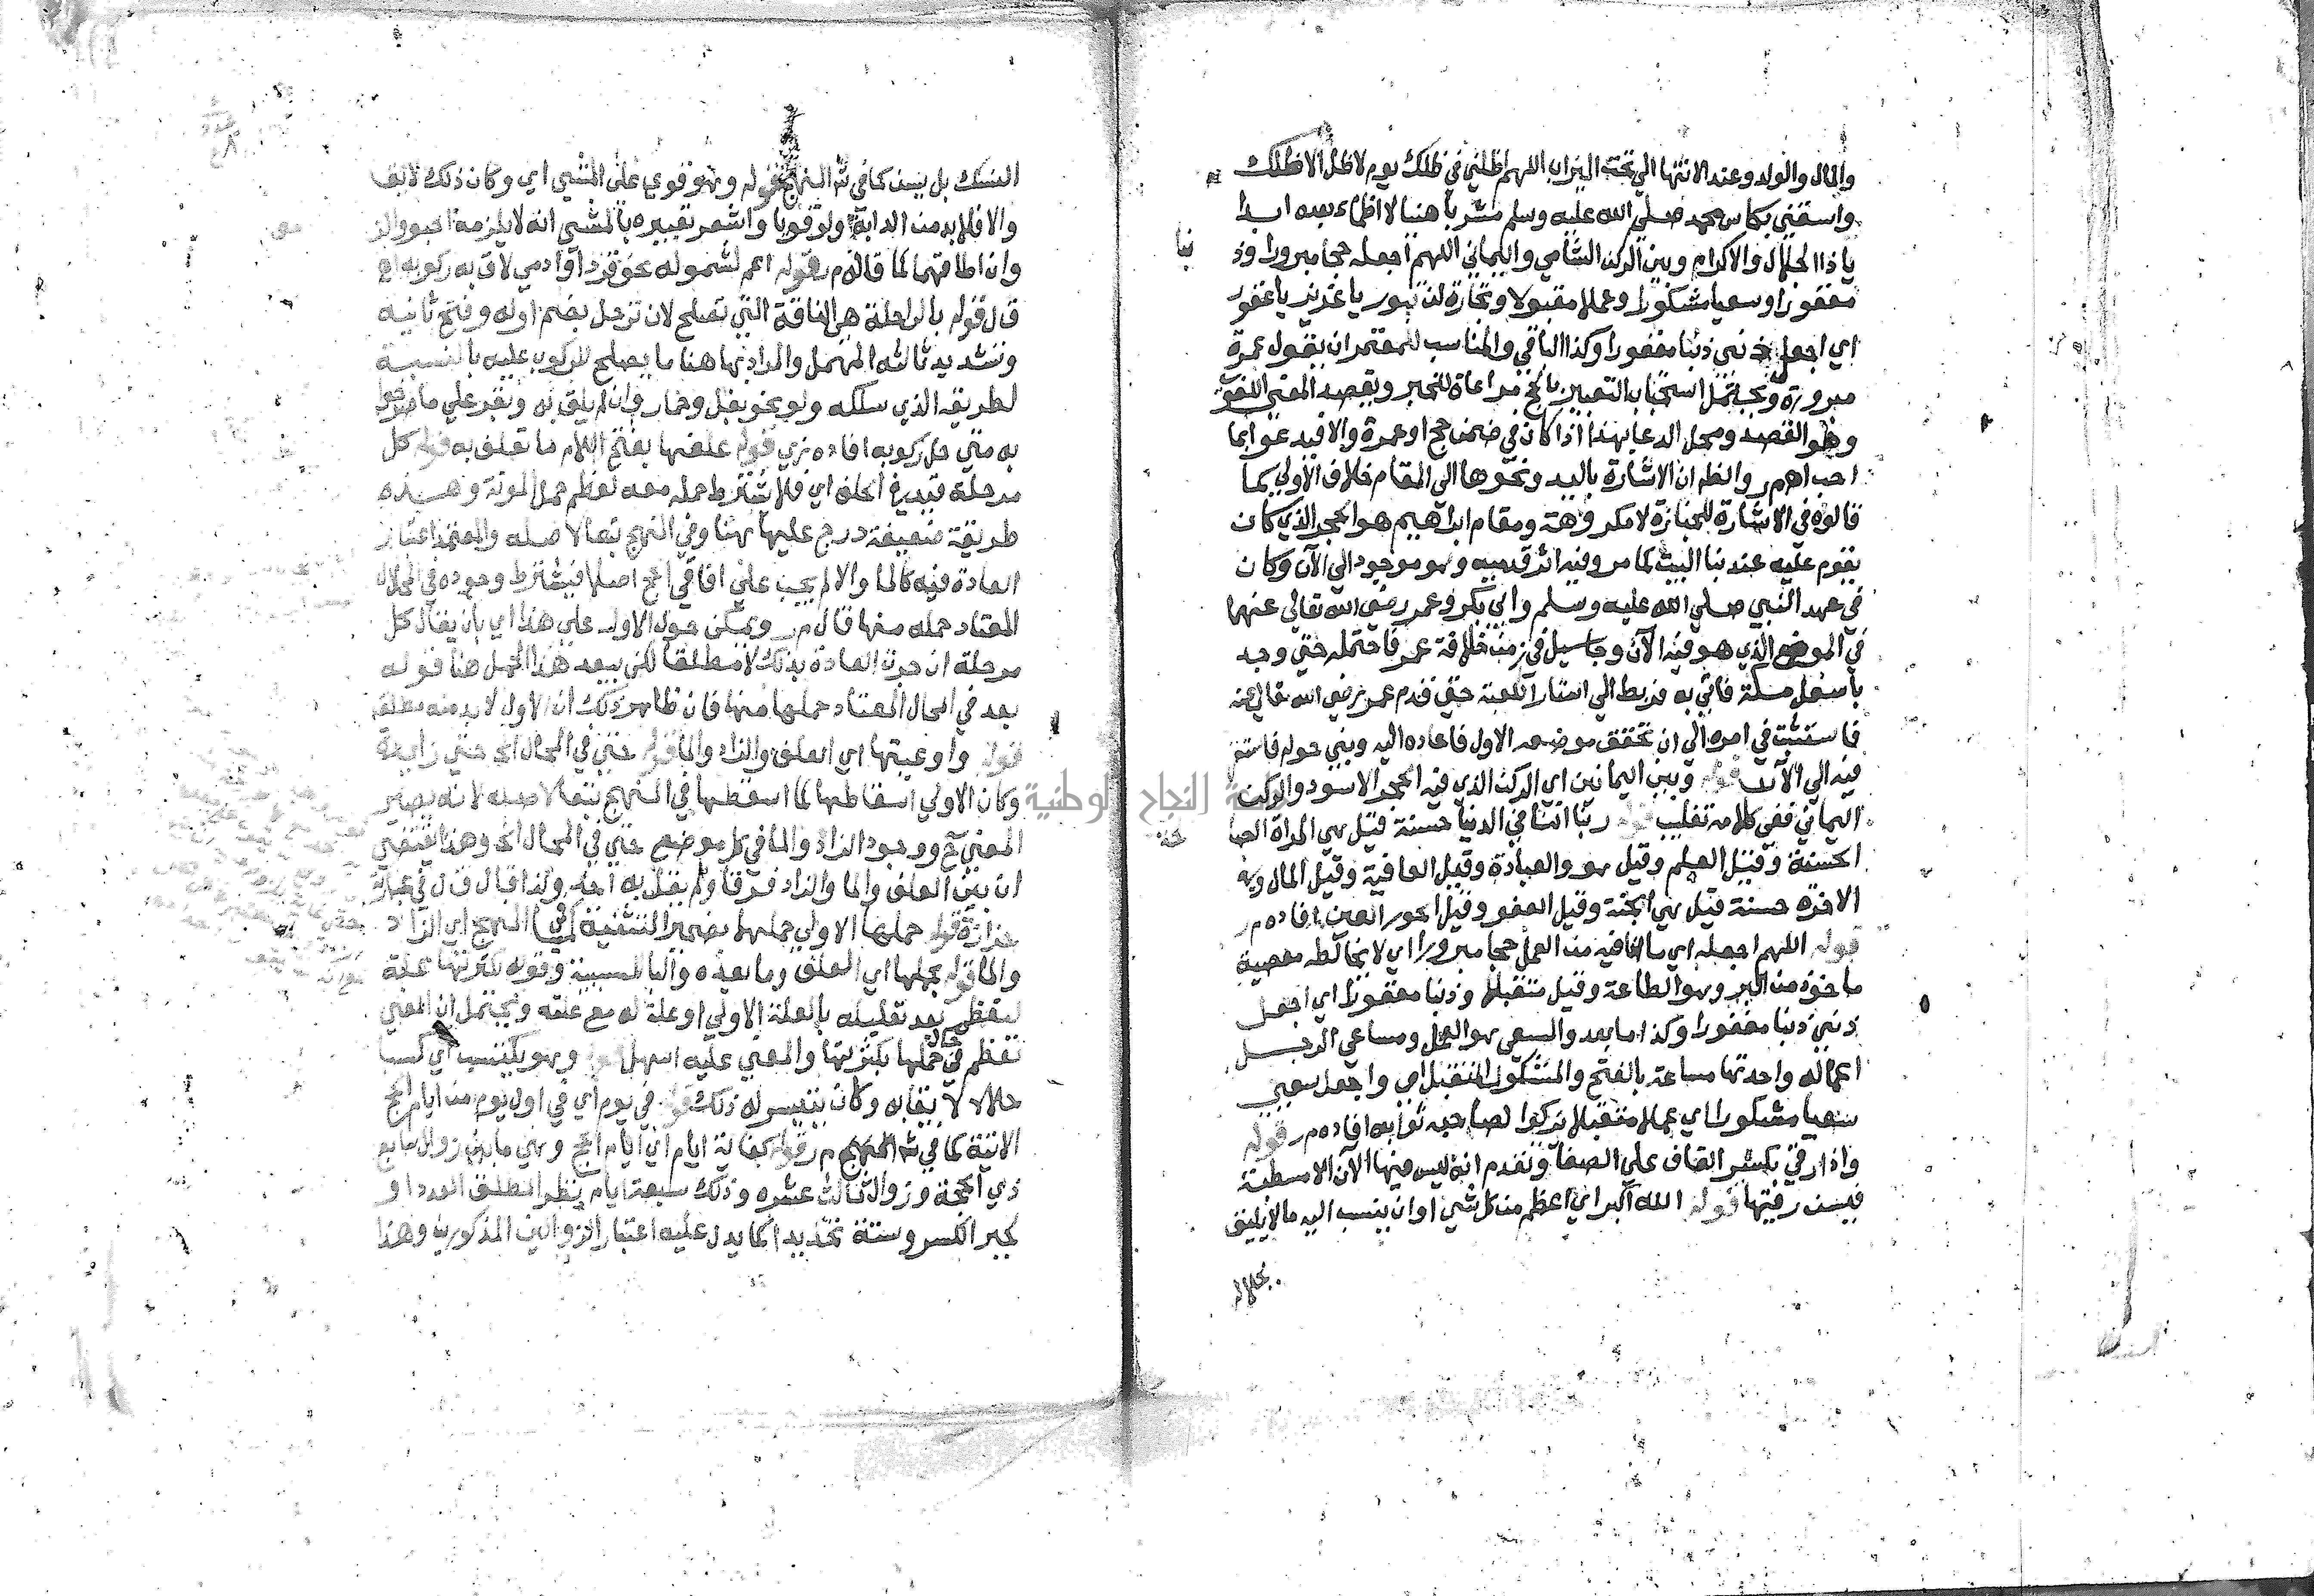 والمال والولد وعند الانتها الي تحت الميزاب اللهم اظلني في ظلك يوم لا ظل الا ظلك
واسقني بكاس محمد صلي الله عليه وسلم مشربا هنيا لا اظماء بعده ابدا
يا ذا الجلال والاكرام وبين الركن الشامي واليماني اللهم اجعله حجا مبرورا وذ
نبا
مغفورا وسعيا مشكورا وعملا مقبولا وتجارة لن تبور يا عزيز يا غفور
اي اجعل ذنبي ذنبا مغفورا وكذا الباقي والمناسب للمعتمر ان يقول عمرة
مبرورة ويحتمل استحباب التعبير بالحج مراعاة للخبر ويقصد المعني اللغوي
وهو القصد ومحل الدعا بهذا اذا كان في ضمن حج او عمرة والا فيدعو بما
احب اهم ر والظ ان الاشارة باليد ونحوها الي المقام خلاف الاولي كما
قالوه في الاشارة للجنازة لا مكروهة ومقام ابراهيم هو الحجر الذي كان
يقوم عليه عند بنا البيت كما مر وفيه اثر قدميه وهو موجود الي الآن وكان
في عهد النبي صلي الله عليه وسلم وابي بكر وعمر رضي الله تعالي عنهما
في الموضع الذي هو فيه الآن وجا سيل في زمن خلافة عمر فاحتمله حتي وجد
باسفل مكة فاتي به فربط الي استار الكعبة حتي قدم عمر رضي الله تعالي عنه
فاستثبت في امره الي ان تحقق موضعه الاول فاعاده اليه وبني حوله فاستقر
فيه الي الآن قوله وبين اليمانين اي الركن الذي فيه الحجر الاسود والركن
اليماني ففي كلامه تغليب قوله ربنا اتنا في الدنيا حسنة قيل هي المراة الصا
لحة
الحسنة وقيل العلم وقيل هو والعبادة وقيل العافية وقيل المال وفي
الاخرة حسنة قيل هي الجنة وقيل العفو وقيل الحور العين افاده م ر
قوله اللهم اجعله اي ما انا فيه من العمل حجا مبرورا اي لا يخالطه معصية
ماخوذ من البر وهو الطاعة وقيل متقبلا وذنبا مغفورا اي اجعل
ذنبي ذنبا مغفورا وكذا ما بعد والسعي هو العمل ومساعي الرجل
اعماله واحدتها مسعاة بالفتح والمشكور المتقبل اي واجعل سعيي
سعيا مشكورا اي عملا متقبلا يزكوا لصاحبه ثوابه افاده م ر قوله
واذا رقي بكسر القاف علي الصفا وتقدم انه ليس منها الآن الا مسطبة
فيسن رقيتها قوله الله اكبر اي اعظم من كل شي او ان ينسب اليه ما لا يليق
بجلاله
النسك بل يسن كما في شر النهج قوله وهو قوي علي المشي اي وكان ذلك لائقا
والا فلا بد من الدابة ولو قويا واشعر تعبيره بالمشي انه لا يلزمه الحبو والز
وان اطاقهما كما قال م ر قوله اعم لشموله نحو قرد او ادمي لاق به ركوبه
ق ل قوله بالراحلة هي الناقة التي تصلح لان ترحل بضم اوله وفتح ثانيه
وتشديد ثالثه المهمل والمراد بها هنا ما يصلح للركوب عليه بالنسبة
لطريقه الذي سلكه ولو نحو بغل وحمار وان لم يلق به
به متي حل ركوبه افاده زي قوله علفها بفتح اللام ما تعلف به قوله كل
مرحلة قيد في العلف اي فلا يشترط حمله معه لعظم حمل المونة وهذه
طريقة ضعيفة درج عليها هنا وفي النهج تبعا لاصله والمعتمد اعتبار
العادة فيه كالما والا لم يجب علي افاقي الحج اصلا فيشترط وجوده في المحال
المعتاد حمله منها قال م ر ويمكن حمل الاول علي هذا اي بان يقال كل
مرحلة ان جرت العادة بذلك لا مطلقا لكن يبعد هذا الحمل هنا قوله
بعد في المحال المعتاد حملها منها فان ظاهر ذلك ان الاول لا بد منه مطلقا
قوله واوعيتها اي العلف والزاد والما قوله حتي في المحال الخ حتي زايدة
وكان الاولي اسقاطها كما اسقطها في النهج تبعا لاصله لانه يصير
المعني ح ووجود الزاد والما في كل موضع حتي في المحال الخ وهذا يقتضي
ان بين العلف والما والزاد فرقا ولم يقل به احد ولذا قال ق ل في عبارته
حزازة قوله حملها الاولي حملهما بضمير التثنية كما في النهج اي الزاد
والما قوله بحملها اي العلف وما بعده والبا للسببية وقوله لكثرتها علة
لتعظم بعد تعليله بالعلة الاولي او علة له مع علته ويحتمل ان المعني
تعظم في حال حملها بكثرتها والمعني عليه اسهل قوله وهو يكتسب اي كسبا
حلالا لايقا به وكان يتيسر له ذلك قوله في يوم اي في اول يوم من ايام الحج
الاتية كما في شر المنهج م ر قوله كفاية ايام اي ايام الحج وهي ما بين زوال سابع
ذي الحجة وزوال ثالث عشره وذلك سبعة ايام ينظر المطلق العدد او
لجبر الكسر وستة تحديدا كما يدل عليه اعتبار الزوالين المذكورين وهذا